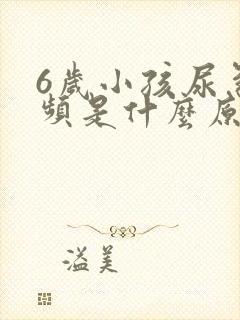 6歲小孩尿
頻是什麼原
溢美